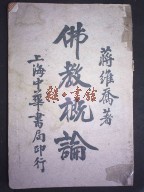 蔣維喬著
佛教概論
上海中華書局印行